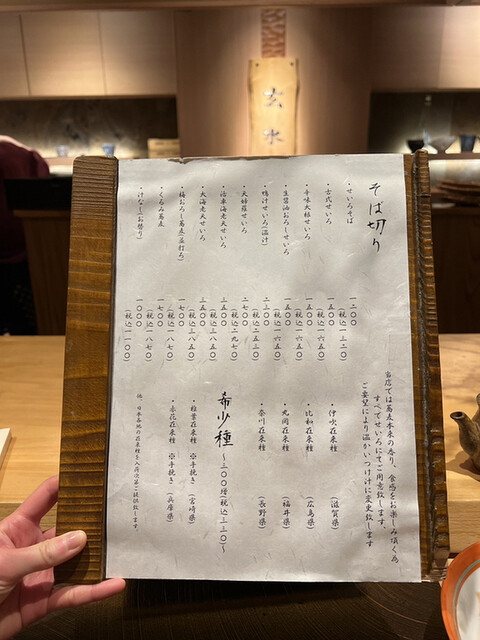 玄水
そば切り
・せいろそば
一二〇〇
(税込一三二〇)
・古式せいろ
一五〇〇
(税込一六五〇)
・辛味大根せいろ
一五〇〇
(税込一六五〇)
・生醤油おろしせいろ
一五〇〇
(税込一六五〇)
・鴨汁せいろ(温汁)
二三〇〇
(税込二五三〇)
・天婦羅せいろ
二七〇〇
(税込二九七〇)
・活車海老天せいろ
三五〇〇
(税込三八五〇)
・大海老天せいろ
三五〇〇
(税込三八五〇)
おろし蕎麦(並打ち)
一七〇〇
(税込一八七〇)
・くるみ蕎麦
一七〇〇
(税込一八七〇)
(お替り)
一〇〇〇
(税込一一〇〇)
当店では蕎麦本来の香り、食感をお楽しみ頂く為
すべてせいろにてご用意致します。
ご要望により温かいつけ汁に変更致します
・伊吹在来種 (滋賀県)
・比和在来種 (広島県)
・丸岡在来種 (福井県)
・奈川在来種 (長野県)
希少種 ~三〇〇増税込三三〇~
・椎葉在来種 ※手挽き (宮崎県)
・赤花在来種 ※手挽き (兵庫県)
尚、日本各地の在来種を入荷次第ご提供致します。